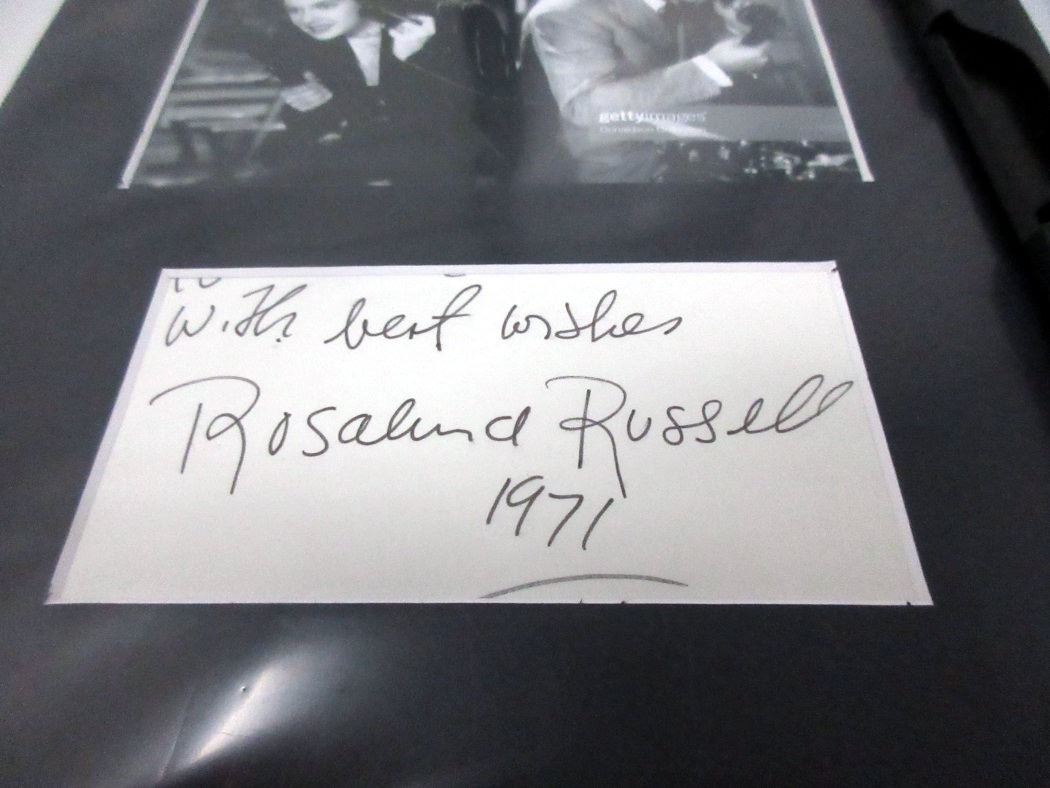 gettyimages
Donaldson
With best wishes
Rosalind Russell
1971